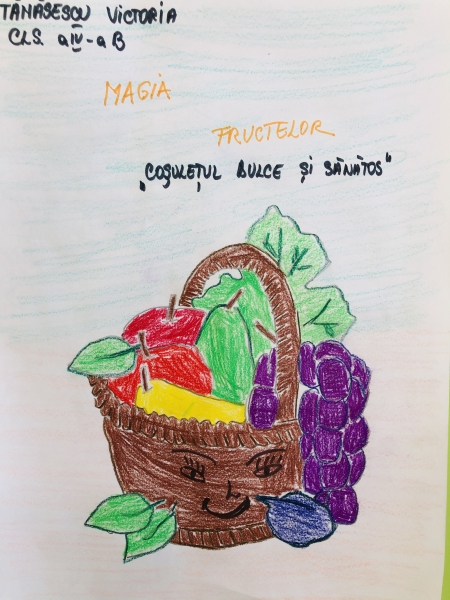 TĂNĂSESCU VICTORIA
CLS. a IV-a B
MAGIA
FRUCTELOR
„COȘULEȚUL DULCE ȘI SĂNĂTOS"